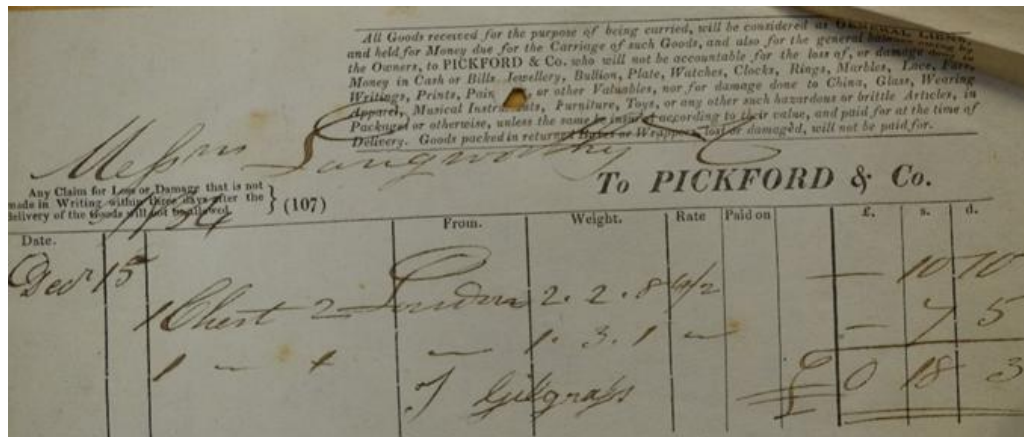 All Goods received for the purpose of being carried, will be considered as GENERAL LIENS,
and held for Money due for the Carriage of such Goods, and also for the general owing by
the Owners, to PICKFORD & Co. who will not be accountable for the loss of, or damage done to
Money in Cash or Bills Jewellery, Bullion, Plate, Watches, Clocks, Rings, Marbles, Lace, Furs,
Writings, Prints, Pain s, or other Valuables, nor for damage done to China, Glass, Wearing
Apparel, Musical Instruments, Furniture, Toys, or any other such hazardous or brittle Articles, in
Packages or otherwise, unless the same be insured according to their value, and paid for at the time of
Delivery. Goods packed in returned or Wrappers, lost or damaged, will not be paid for.
Messrs Langworthy & Co
To PICKFORD & Co.
Any Claim for Loss or Damage that is not
made in Writing within three days after the
delivery of the Goods will not be allowed. } (107)
Date. From. Weight. Rate Paid on £. s. d.
Decr 15
1 Chest 2 London 2.2.8 4/2 — 10 10
1 — — 1.3.1 — — 7 5
£ 0 18 3